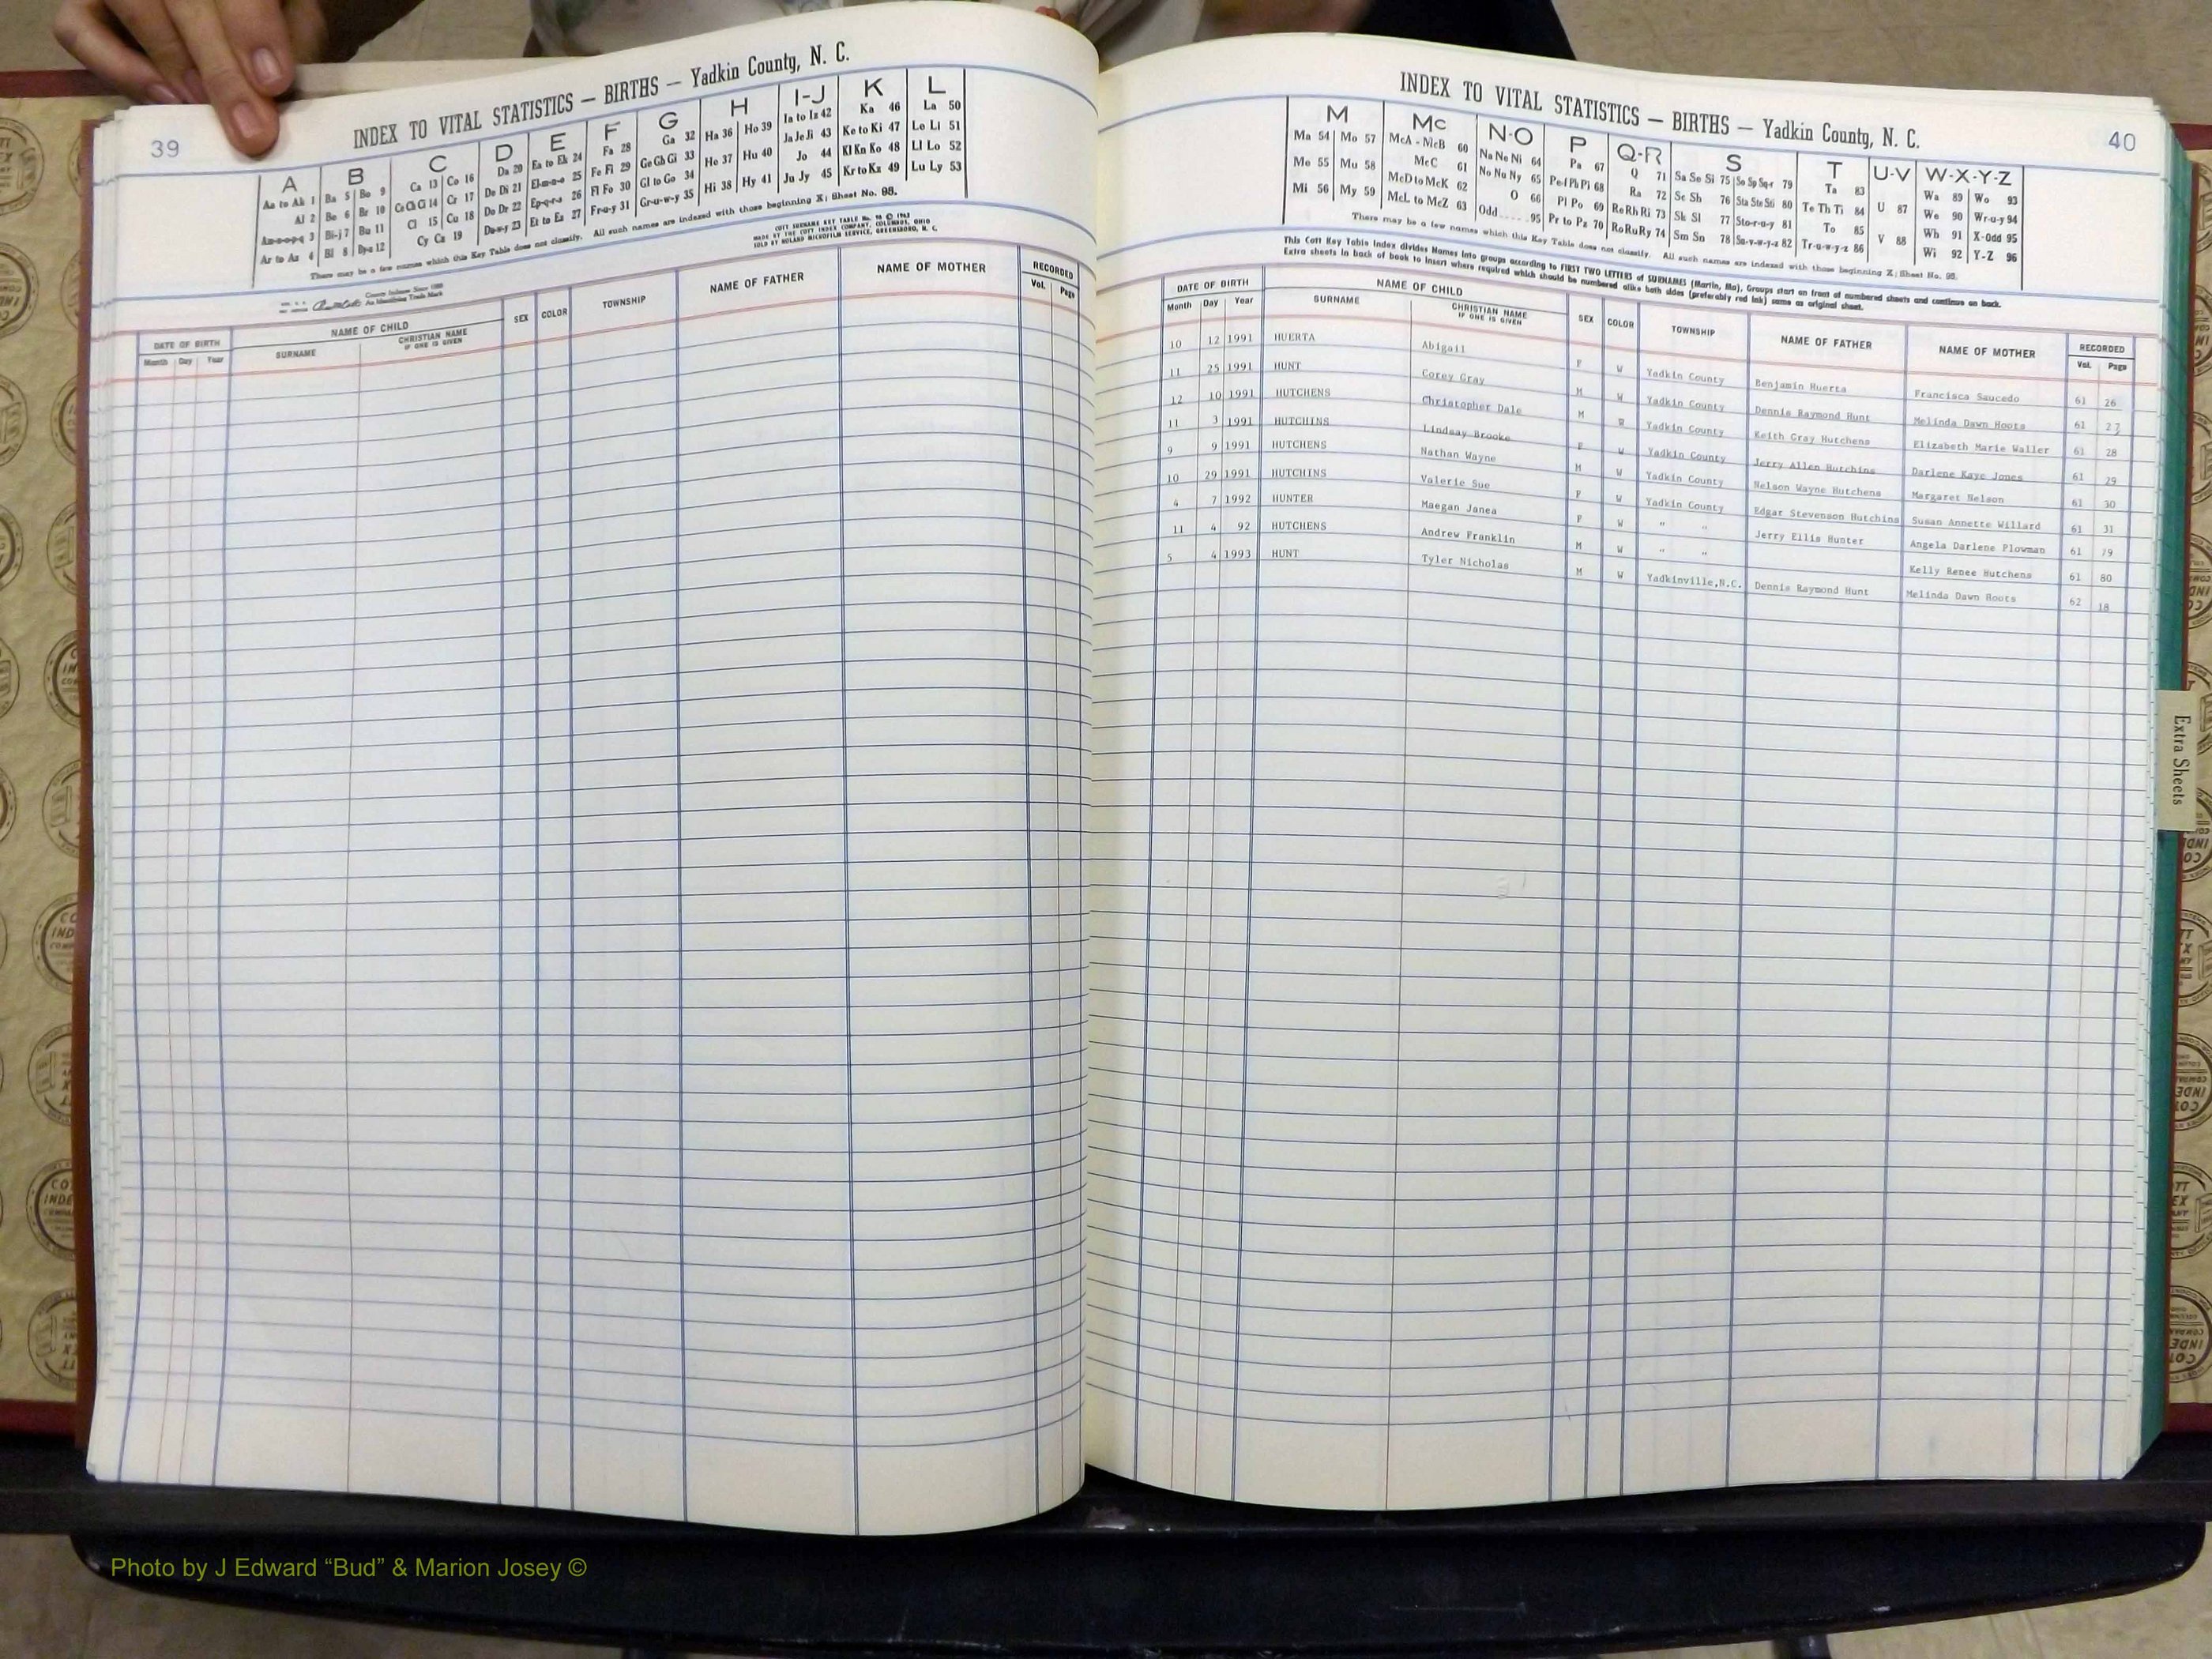 39
INDEX TO VITAL STATISTICS — BIRTHS — Yadkin County, N. C.
A B C D E F G H I-J K L
Aa to Ak 1 Ba 5 Bo 9 Ca 13 Co 16 Da 20 Ea to Ek 24 Fa 28 Ga 32 Ha 36 Ho 39 Ia to Iz 42 Ka 46 La 50
Al 2 Be 6 Br 10 Ce Ch Ci 14 Cr 17 De Di 21 El-m-n-o 25 Fe Fi 29 Ge Gh Gi 33 He 37 Hu 40 Ja Je Ji 43 Ke to Ki 47 Le Li 51
Am-n-o-p-q 3 Bi-j 7 Bu 11 Cl 15 Cu 18 Do Dr 22 Ep-q-r-s 26 Fl Fo 30 Gl to Go 34 Hi 38 Hy 41 Jo 44 Kl Kn Ko 48 Ll Lo 52
Ar to Az 4 Bl 8 By-z 12 Cy Cz 19 Du-w-y 23 Et to Ez 27 Fr-u-y 31 Gr-u-w-y 35 Ju Jy 45 Kr to Kz 49 Lu Ly 53
There may be a few names which this Key Table does not classify. All such names are indexed with those beginning X; Sheet No. 98.
COTT SURNAME KEY TABLE No. 96 © 1963
MADE BY THE COTT INDEX COMPANY, COLUMBUS, OHIO
SOLD BY ROLAND MICROFILM SERVICE, GREENSBORO, N. C.
County Indexes Since 1888
An Identifying Trade Mark
DATE OF BIRTH NAME OF CHILD SEX COLOR TOWNSHIP NAME OF FATHER NAME OF MOTHER RECORDED
Month Day Year SURNAME CHRISTIAN NAME IF ONE IS GIVEN Vol. Page
INDEX TO VITAL STATISTICS — BIRTHS — Yadkin County, N. C.
40
M Mc N-O P Q-R S T U-V W-X-Y-Z
Ma 54 Mo 57 McA - McB 60 Na Ne Ni 64 Pa 67 Q 71 Sa Se Si 75 So Sp Sq-r 79 Ta 83 U 87 Wa 89 Wo 93
Me 55 Mu 58 McC 61 No Nu Ny 65 Pe-f Ph Pi 68 Ra 72 Sc Sh 76 Sta Ste Sti 80 Te Th Ti 84 V 88 We 90 Wr-u-y 94
Mi 56 My 59 McD to McK 62 O 66 Pl Po 69 Re Rh Ri 73 Sk Sl 77 Sto-r-u-y 81 To 85 Wh 91 X-Odd 95
McL to McZ 63 Odd 95 Pr to Pz 70 Ro Ru Ry 74 Sm Sn 78 Su-v-w-y-z 82 Tr-u-w-y-z 86 Wi 92 Y-Z 96
There may be a few names which this Key Table does not classify. All such names are indexed with those beginning X; Sheet No. 98.
This Cott Key Table Index divides Names into groups according to FIRST TWO LETTERS of SURNAMES (Martin, Ma), Groups start on front of numbered sheets and continue on back.
Extra sheets in back of book to insert where required which should be numbered alike both sides (preferably red ink) same as original sheet.
DATE OF BIRTH NAME OF CHILD SEX COLOR TOWNSHIP NAME OF FATHER NAME OF MOTHER RECORDED
Month Day Year SURNAME CHRISTIAN NAME IF ONE IS GIVEN Vol. Page
10 12 1991 HUERTA Abigail F W Yadkin County Benjamin Huerta Francisca Saucedo 61 26
11 25 1991 HUNT Corey Gray M W Yadkin County Dennis Raymond Hunt Melinda Dawn Hoots 61 27
12 10 1991 HUTCHENS Christopher Dale M W Yadkin County Keith Gray Hutchens Elizabeth Marie Waller 61 28
11 3 1991 HUTCHINS Lindsay Brooke F W Yadkin County Jerry Allen Hutchins Darlene Kaye Jones 61 29
9 9 1991 HUTCHENS Nathan Wayne M W Yadkin County Nelson Wayne Hutchens Margaret Nelson 61 30
10 29 1991 HUTCHINS Valerie Sue F W Yadkin County Edgar Stevenson Hutchins Susan Annette Willard 61 31
4 7 1992 HUNTER Maegan Janea F W " " Jerry Ellis Hunter Angela Darlene Plowman 61 79
11 4 92 HUTCHENS Andrew Franklin M W " " Kelly Renee Hutchens 61 80
5 4 1993 HUNT Tyler Nicholas M W Yadkinville,N.C. Dennis Raymond Hunt Melinda Dawn Hoots 62 18
Extra Sheets
Photo by J Edward “Bud” & Marion Josey ©